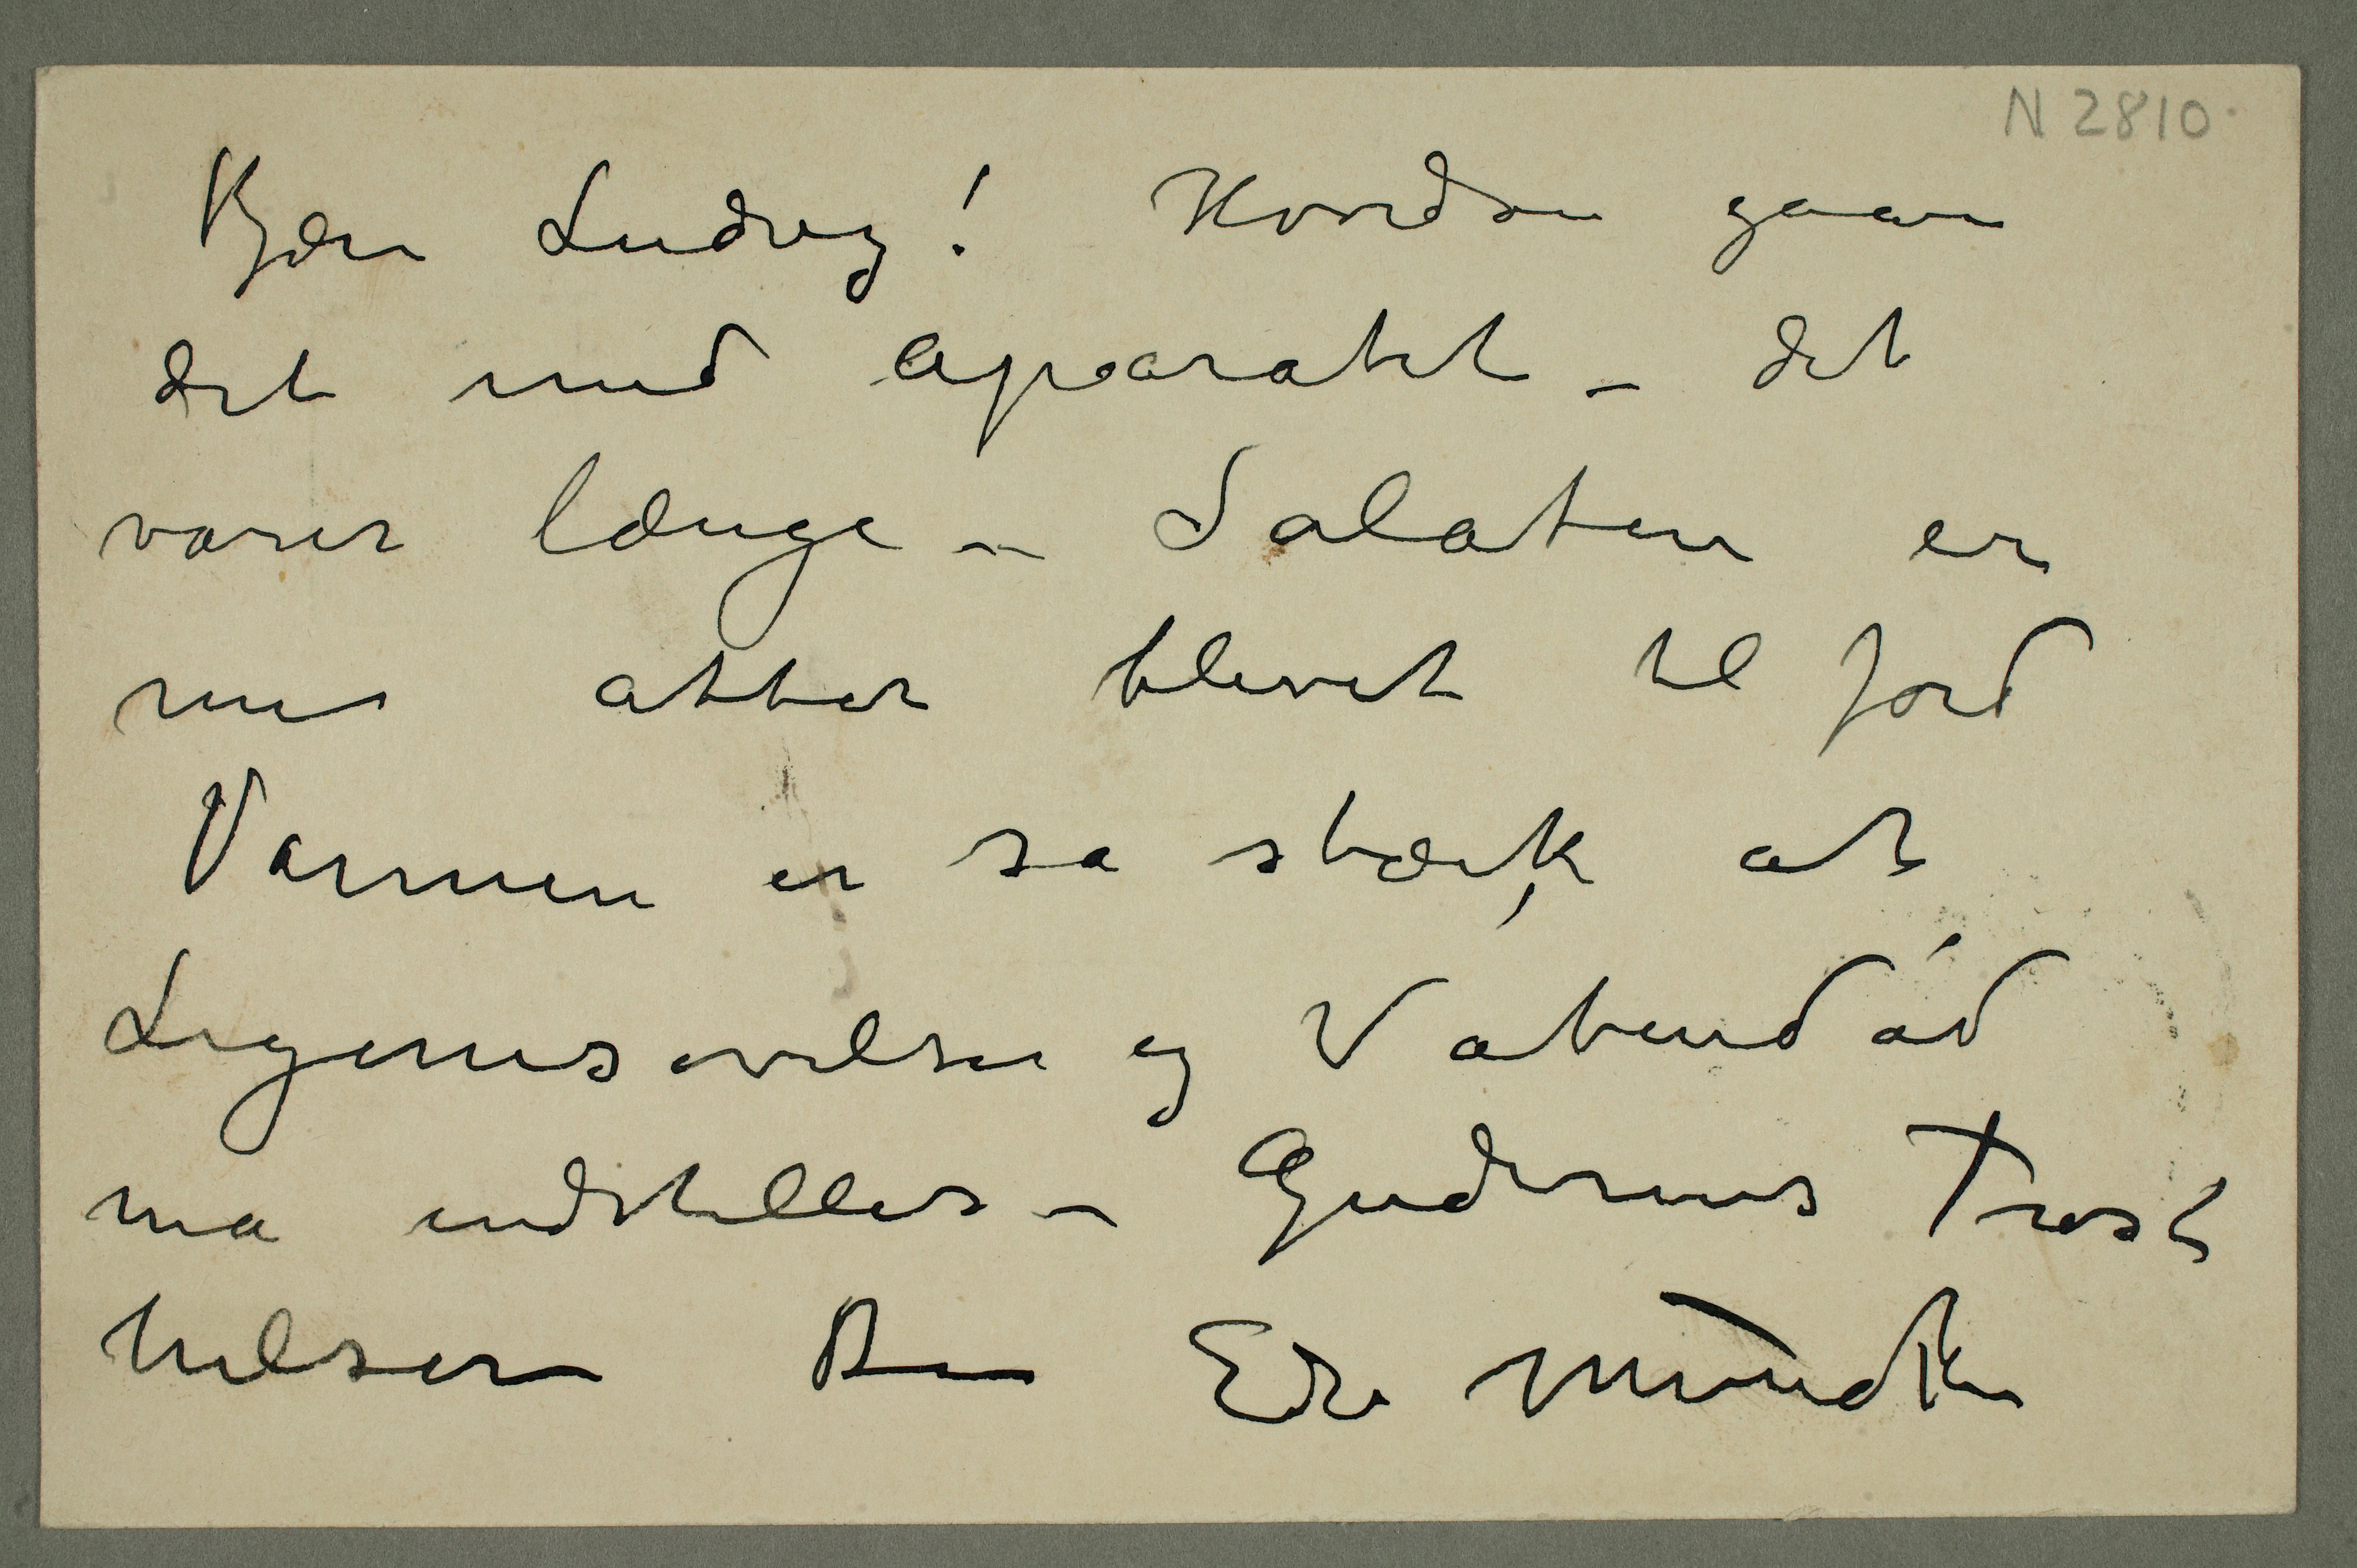 N 2810
Kjære Ludvig! Hvordan gaar
det med Aparatet – det
varer længe – Salaten er
nu atter blevet til Jord
Varmen er sa stærk at
Legemsøvelser og Vabendåd
ma indstilles – Gudernes Trøst
hilsen Din Edv Munch